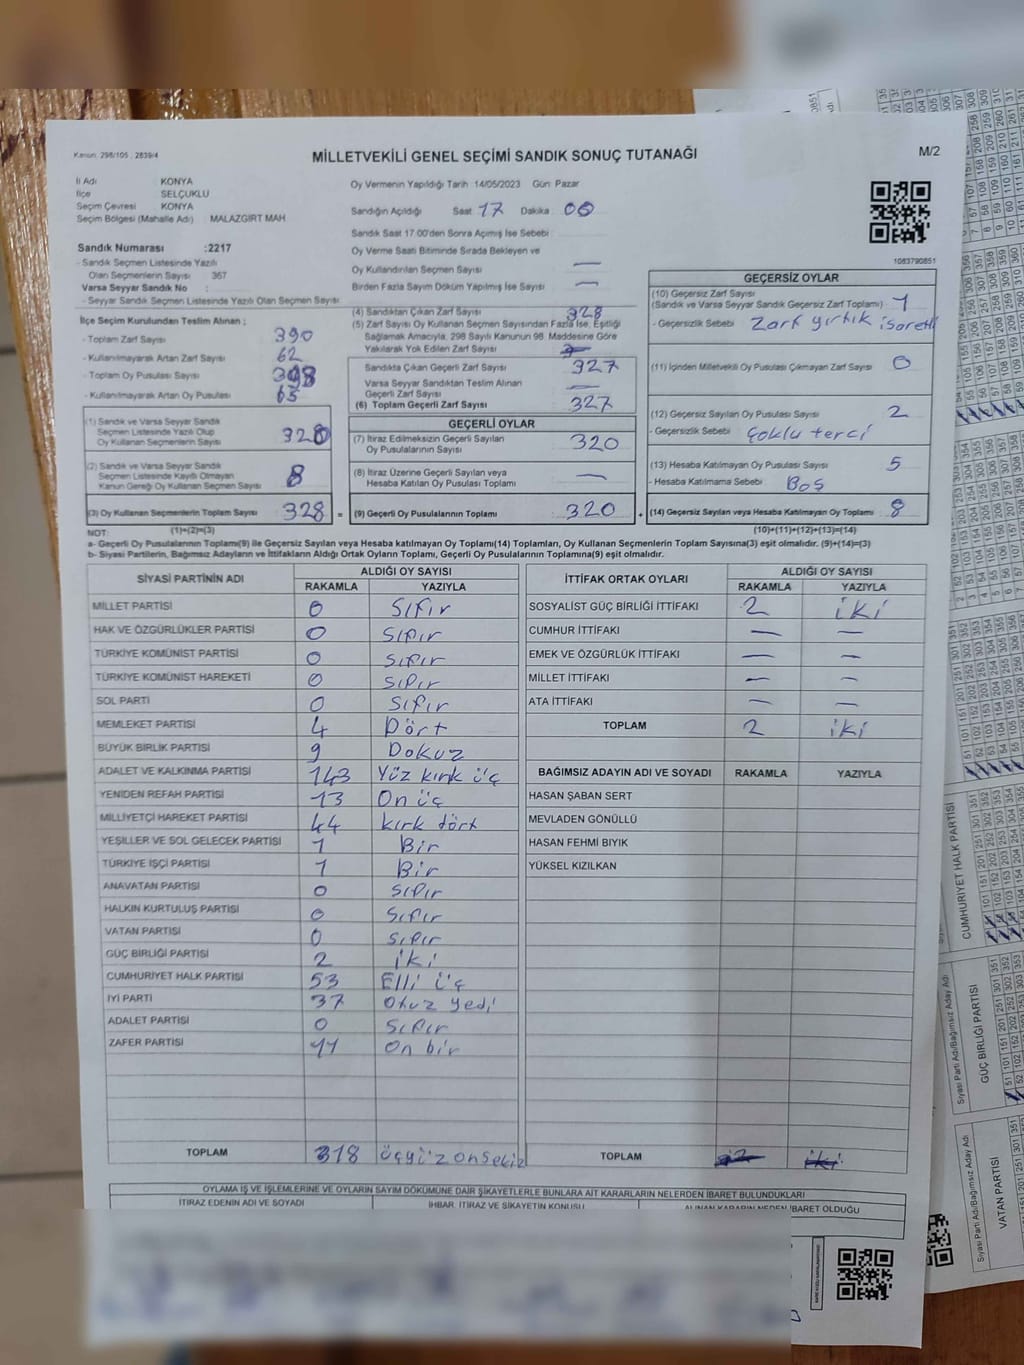 Kanun: 298/105 ; 2839/4
MİLLETVEKİLİ GENEL SEÇİMİ SANDIK SONUÇ TUTANAĞI
M/2
İl Adı : KONYA
İlçe : SELÇUKLU
Seçim Çevresi : KONYA
Seçim Bölgesi (Mahalle Adı) : MALAZGİRT MAH
Sandık Numarası :2217
- Sandık Seçmen Listesinde Yazılı
Olan Seçmenlerin Sayısı : 367
Varsa Seyyar Sandık No :
- Seyyar Sandık Seçmen Listesinde Yazılı Olan Seçmen Sayısı:
Oy Vermenin Yapıldığı Tarih :14/05/2023 Gün: Pazar
Sandığın Açıldığı Saat: 17 Dakika: 00
Sandık Saat 17:00'den Sonra Açılmış İse Sebebi:
Oy Verme Saati Bitiminde Sırada Bekleyen ve
Oy Kullandırılan Seçmen Sayısı : —
Birden Fazla Sayım Döküm Yapılmış İse Sayısı : —
1083790851
İlçe Seçim Kurulundan Teslim Alınan ;
- Toplam Zarf Sayısı : 390
- Kullanılmayarak Artan Zarf Sayısı : 62
- Toplam Oy Pusulası Sayısı :
- Kullanılmayarak Artan Oy Pusulası : 65
(1) Sandık ve Varsa Seyyar Sandık
Seçmen Listesinde Yazılı Olup
Oy Kullanan Seçmenlerin Sayısı : 320
(2) Sandık ve Varsa Seyyar Sandık
Seçmen Listesinde Kayıtlı Olmayan
Kanun Gereği Oy Kullanan Seçmen Sayısı : 8
(3) Oy Kullanan Seçmenlerin Toplam Sayısı : 328 =
(1)+(2)=(3)
(4) Sandıktan Çıkan Zarf Sayısı : 328
(5) Zarf Sayısı Oy Kullanan Seçmen Sayısından Fazla İse, Eşitliği
Sağlamak Amacıyla, 298 Sayılı Kanunun 98. Maddesine Göre
Yakılarak Yok Edilen Zarf Sayısı :
Sandıkta Çıkan Geçerli Zarf Sayısı : 327
Varsa Seyyar Sandıktan Teslim Alınan
Geçerli Zarf Sayısı : —
(6) Toplam Geçerli Zarf Sayısı : 327
GEÇERLİ OYLAR
(7) İtiraz Edilmeksizin Geçerli Sayılan
Oy Pusulalarının Sayısı : 320
(8) İtiraz Üzerine Geçerli Sayılan veya
Hesaba Katılan Oy Pusulası Toplamı : —
(9) Geçerli Oy Pusulalarının Toplamı : 320 +
GEÇERSİZ OYLAR
(10) Geçersiz Zarf Sayısı
(Sandık ve Varsa Seyyar Sandık Geçersiz Zarf Toplamı) : 1
- Geçersizlik Sebebi : Zarf yırtık isaretli
(11) İçinden Milletvekili Oy Pusulası Çıkmayan Zarf Sayısı : 0
(12) Geçersiz Sayılan Oy Pusulası Sayısı : 2
- Geçersizlik Sebebi : Çoklu terci
(13) Hesaba Katılmayan Oy Pusulası Sayısı : 5
- Hesaba Katılmama Sebebi : Boş
(14) Geçersiz Sayılan veya Hesaba Katılmayan Oy Toplamı : 8
(10)+(11)+(12)+(13)=(14)
NOT:
a- Geçerli Oy Pusulalarının Toplamı(9) ile Geçersiz Sayılan veya Hesaba katılmayan Oy Toplamı(14) Toplamları, Oy Kullanan Seçmenlerin Toplam Sayısına(3) eşit olmalıdır. (9)+(14)=(3)
b- Siyasi Partilerin, Bağımsız Adayların ve İttifakların Aldığı Ortak Oyların Toplamı, Geçerli Oy Pusulalarının Toplamına(9) eşit olmalıdır.
SİYASİ PARTİNİN ADI ALDIĞI OY SAYISI
RAKAMLA YAZIYLA
MİLLET PARTİSİ 0 Sıfır
HAK VE ÖZGÜRLÜKLER PARTİSİ 0 Sıfır
TÜRKİYE KOMÜNİST PARTİSİ 0 Sıfır
TÜRKİYE KOMÜNİST HAREKETİ 0 Sıfır
SOL PARTİ 0 Sıfır
MEMLEKET PARTİSİ 4 Dört
BÜYÜK BİRLİK PARTİSİ 9 Dokuz
ADALET VE KALKINMA PARTİSİ 143 Yüz kırk üç
YENİDEN REFAH PARTİSİ 13 On üç
MİLLİYETÇİ HAREKET PARTİSİ 44 kırk tört
YEŞİLLER VE SOL GELECEK PARTİSİ 1 Bir
TÜRKİYE İŞÇİ PARTİSİ 1 Bir
ANAVATAN PARTİSİ 0 Sıfır
HALKIN KURTULUŞ PARTİSİ 0 Sıfır
VATAN PARTİSİ 0 Sıfır
GÜÇ BİRLİĞİ PARTİSİ 2 iki
CUMHURİYET HALK PARTİSİ 53 Elli üç
İYİ PARTİ 37 Otuz yedi
ADALET PARTİSİ 0 Sıfır
ZAFER PARTİSİ 11 On bir
TOPLAM 318 üçyüz onsekiz
İTTİFAK ORTAK OYLARI ALDIĞI OY SAYISI
RAKAMLA YAZIYLA
SOSYALİST GÜÇ BİRLİĞİ İTTİFAKI 2 iki
CUMHUR İTTİFAKI — —
EMEK VE ÖZGÜRLÜK İTTİFAKI — —
MİLLET İTTİFAKI — —
ATA İTTİFAKI — —
TOPLAM 2 iki
BAĞIMSIZ ADAYIN ADI VE SOYADI RAKAMLA YAZIYLA
HASAN ŞABAN SERT
MEVLADEN GÖNÜLLÜ
HASAN FEHMİ BIYIK
YÜKSEL KIZILKAN
TOPLAM
OYLAMA İŞ VE İŞLEMLERİNE VE OYLARIN SAYIM DÖKÜMÜNE DAİR ŞİKAYETLERLE BUNLARA AİT KARARLARIN NELERDEN İBARET BULUNDUKLARI
İTİRAZ EDENİN ADI VE SOYADI İHBAR, İTİRAZ VE ŞİKAYETİN KONUSU ALINAN KARARIN NEDEN İBARET OLDUĞU
CUMHURİYET HALK PARTİSİ
Siyasi Parti Adı/Bağımsız Aday Adı
GÜÇ BİRLİĞİ PARTİSİ
Siyasi Parti Adı/Bağımsız Aday Adı
VATAN PARTİSİ